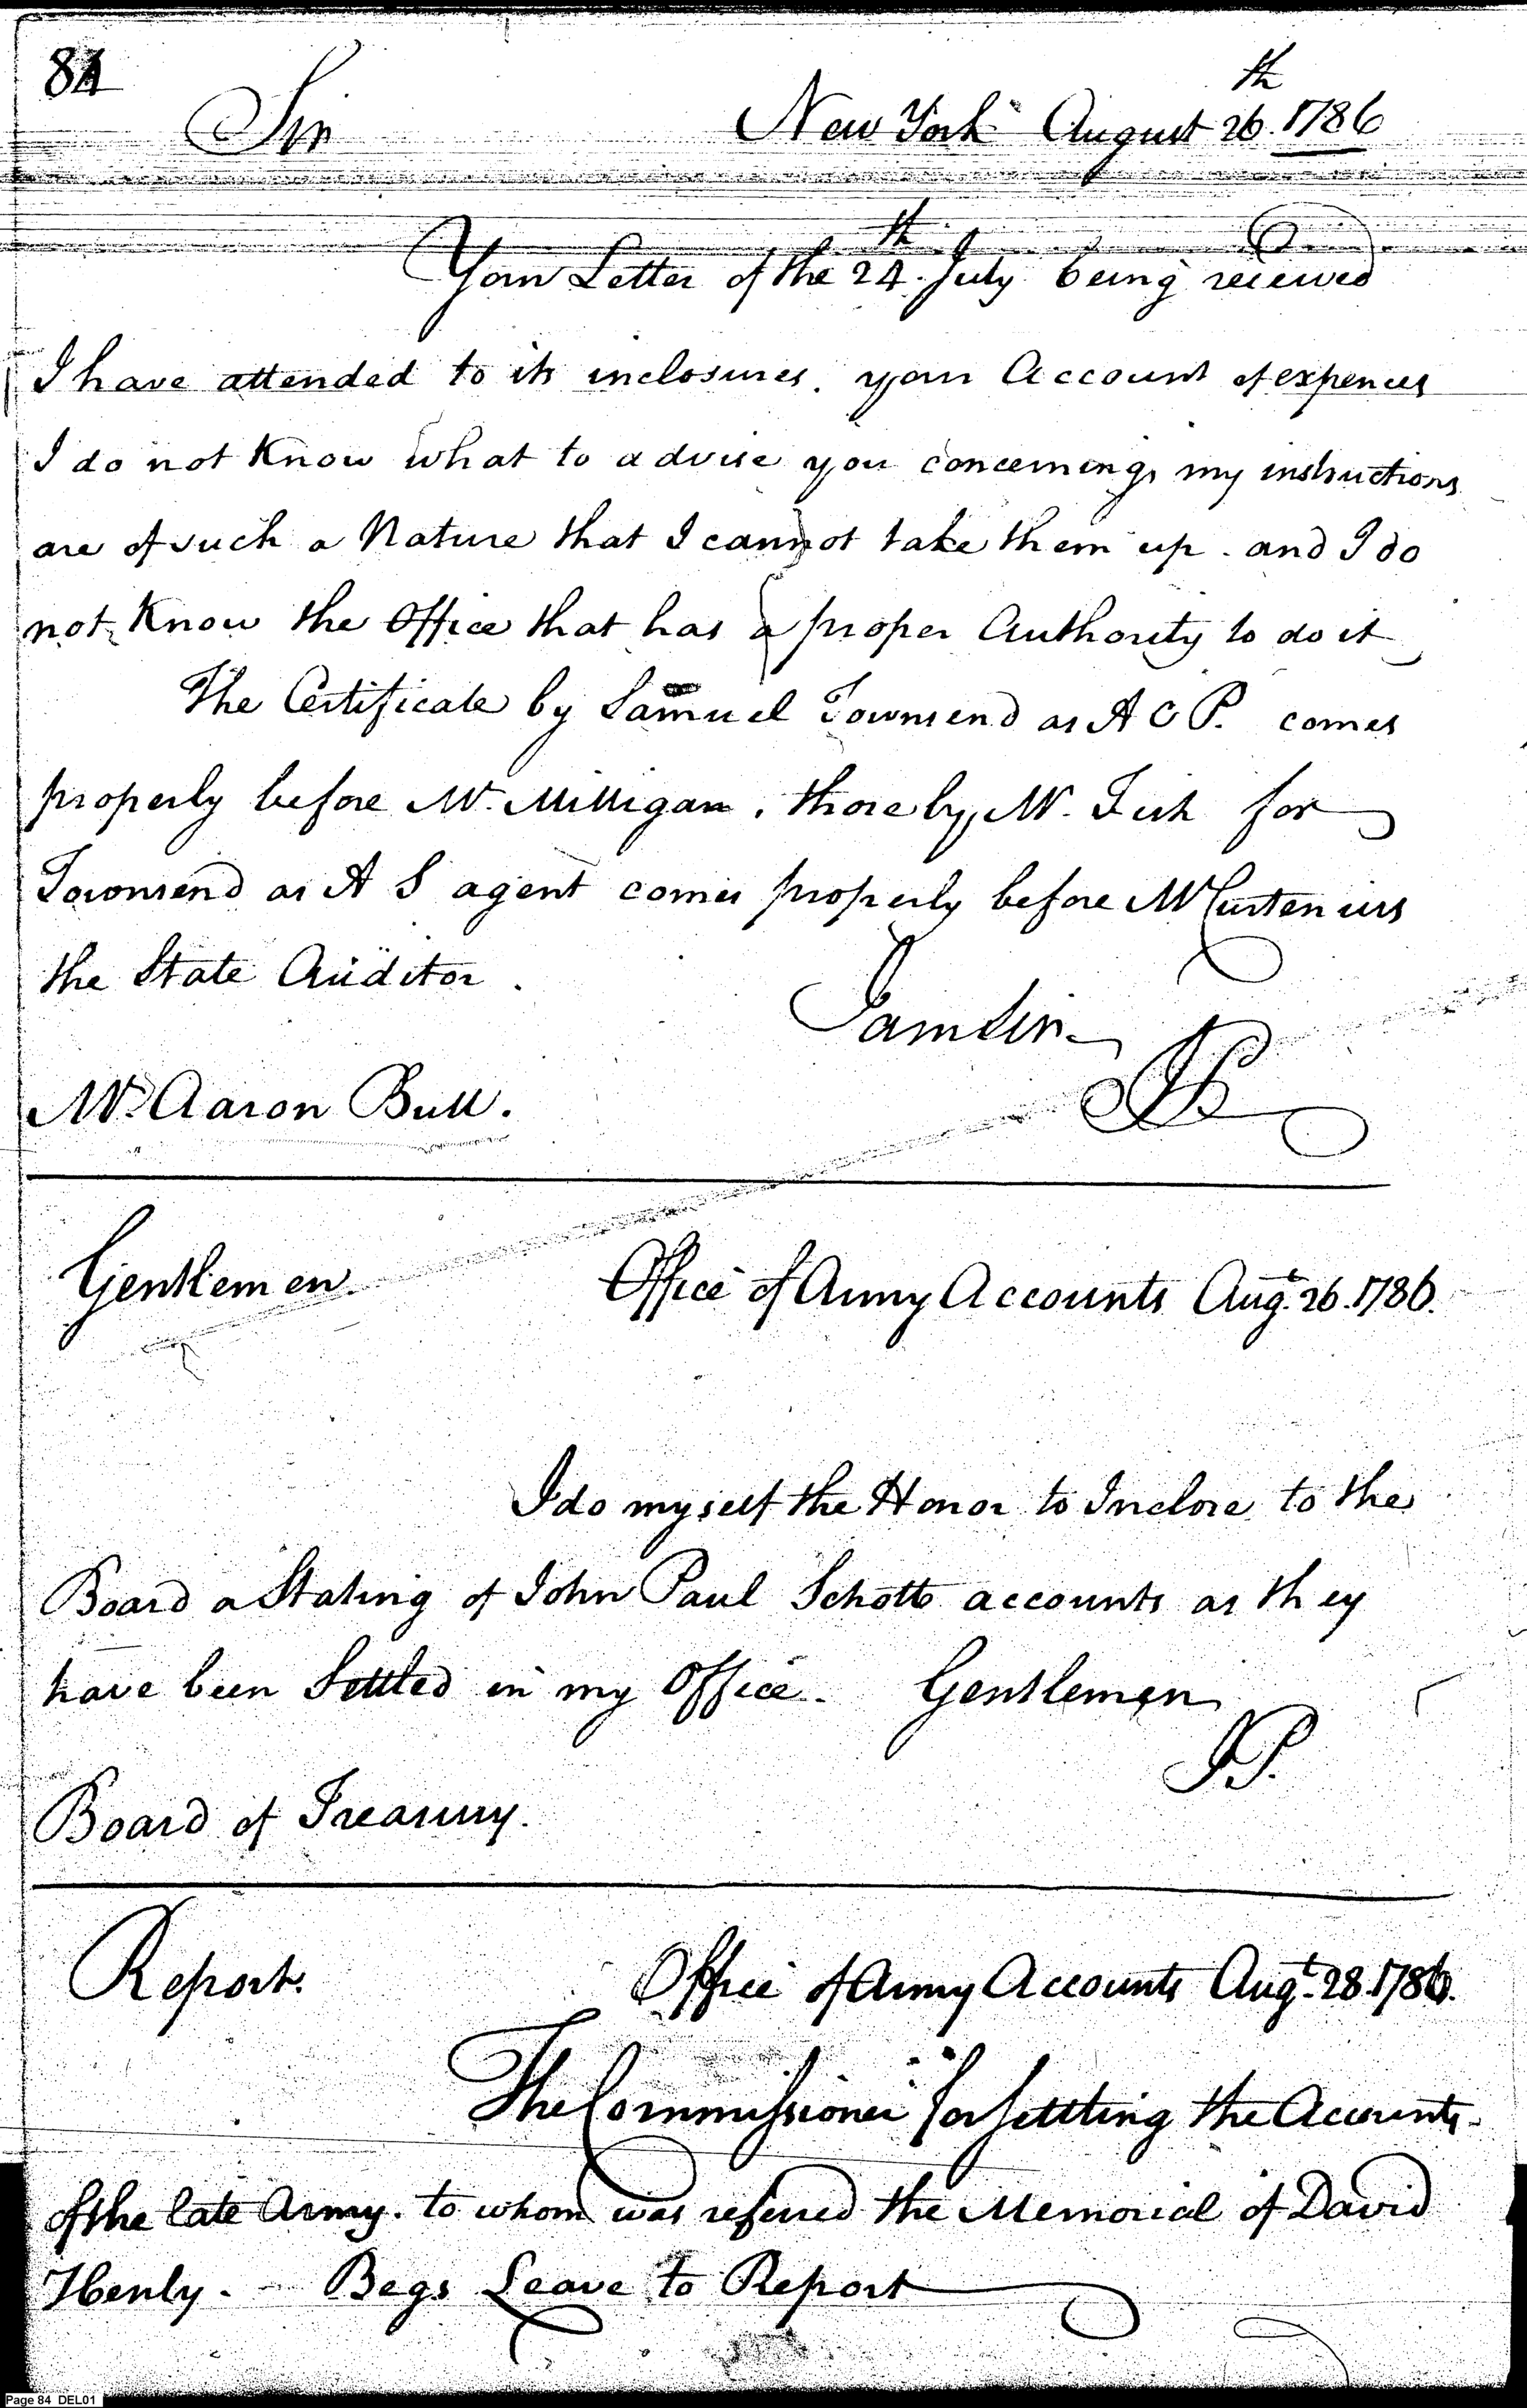 84
Sir New York August 26th. 1786
Your Letter of the 24th. July being received
I have attended to its inclosures. your Account of expences
I do not Know what to advise you concerning, my instructions
are of such a Nature that I cannot take them up. and I do
not Know the Office that has a proper Authority to do it
The Certificate by Samuel Townsend as A C P. comes
properly before Mr. Milligan, those by Mr. Fish for
Townsend as A S agent comes properly before Mr Curtenius
the State Auditor.
I am Sir
Mr. Aaron Bull.
Gentlemen. Office of Army Accounts Augt. 26. 1786.
I do myself the Honor to Inclose to the
Board a Stating of John Paul Schotts accounts as they
have been Settled in my Office. Gentlemen
J.P.
Board of Treasury.
Report. Office of Army Accounts Augt. 28. 1786.
The Commissioner for Settling the Accounts
of the late Army. to whom was referred the Memorial of David
Henly. - Begs Leave to Report
Page 84 DEL01